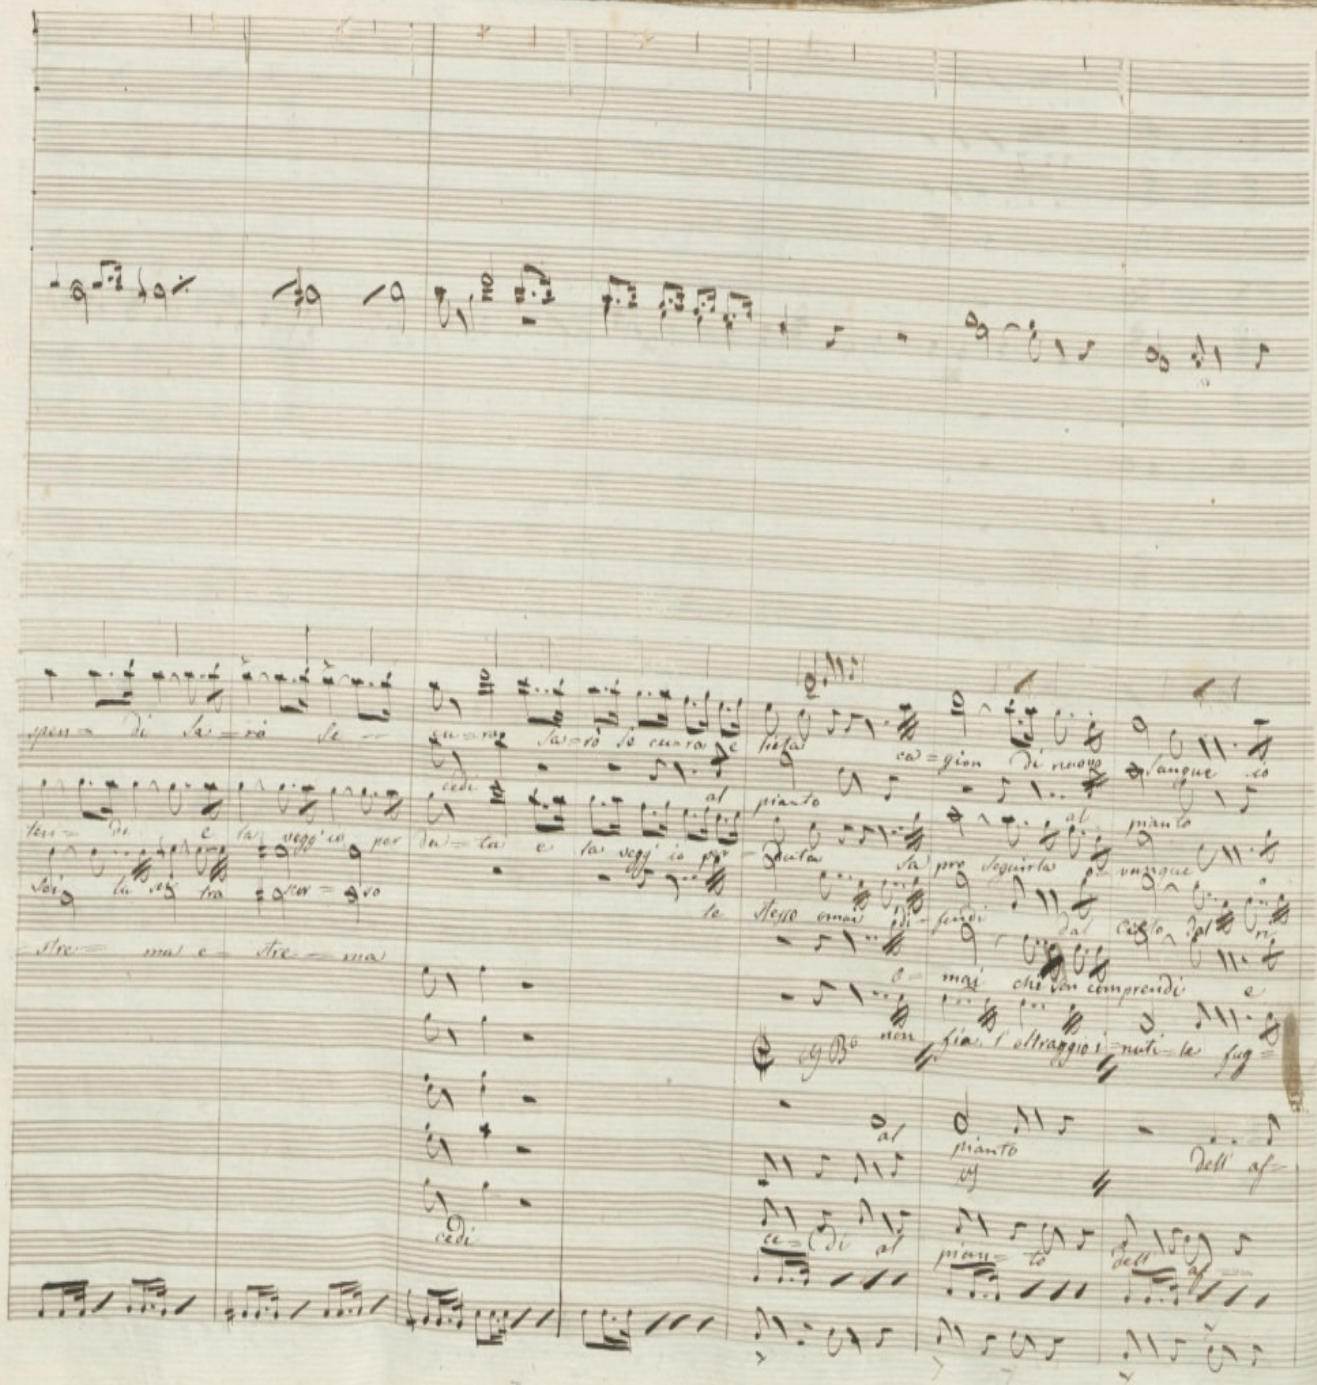 spen= di sa=rò se -- cu=ra sa=rò se cu=ra e lieta ca=gion di nuovo sangue io
cedi al pianto al pianto
ten= di e la vegg'io per du=ta e la vegg'io per=duta sa pro seguirla o=vunque
te stesso omai di=fendi dal cielo dal
=stre= ma e= stre=ma
o=mai chi son comprendi e
non fia l'oltraggio i=nuti=le fug=
al pianto dell' af=
cedi ce=di al pian=to dell' af=